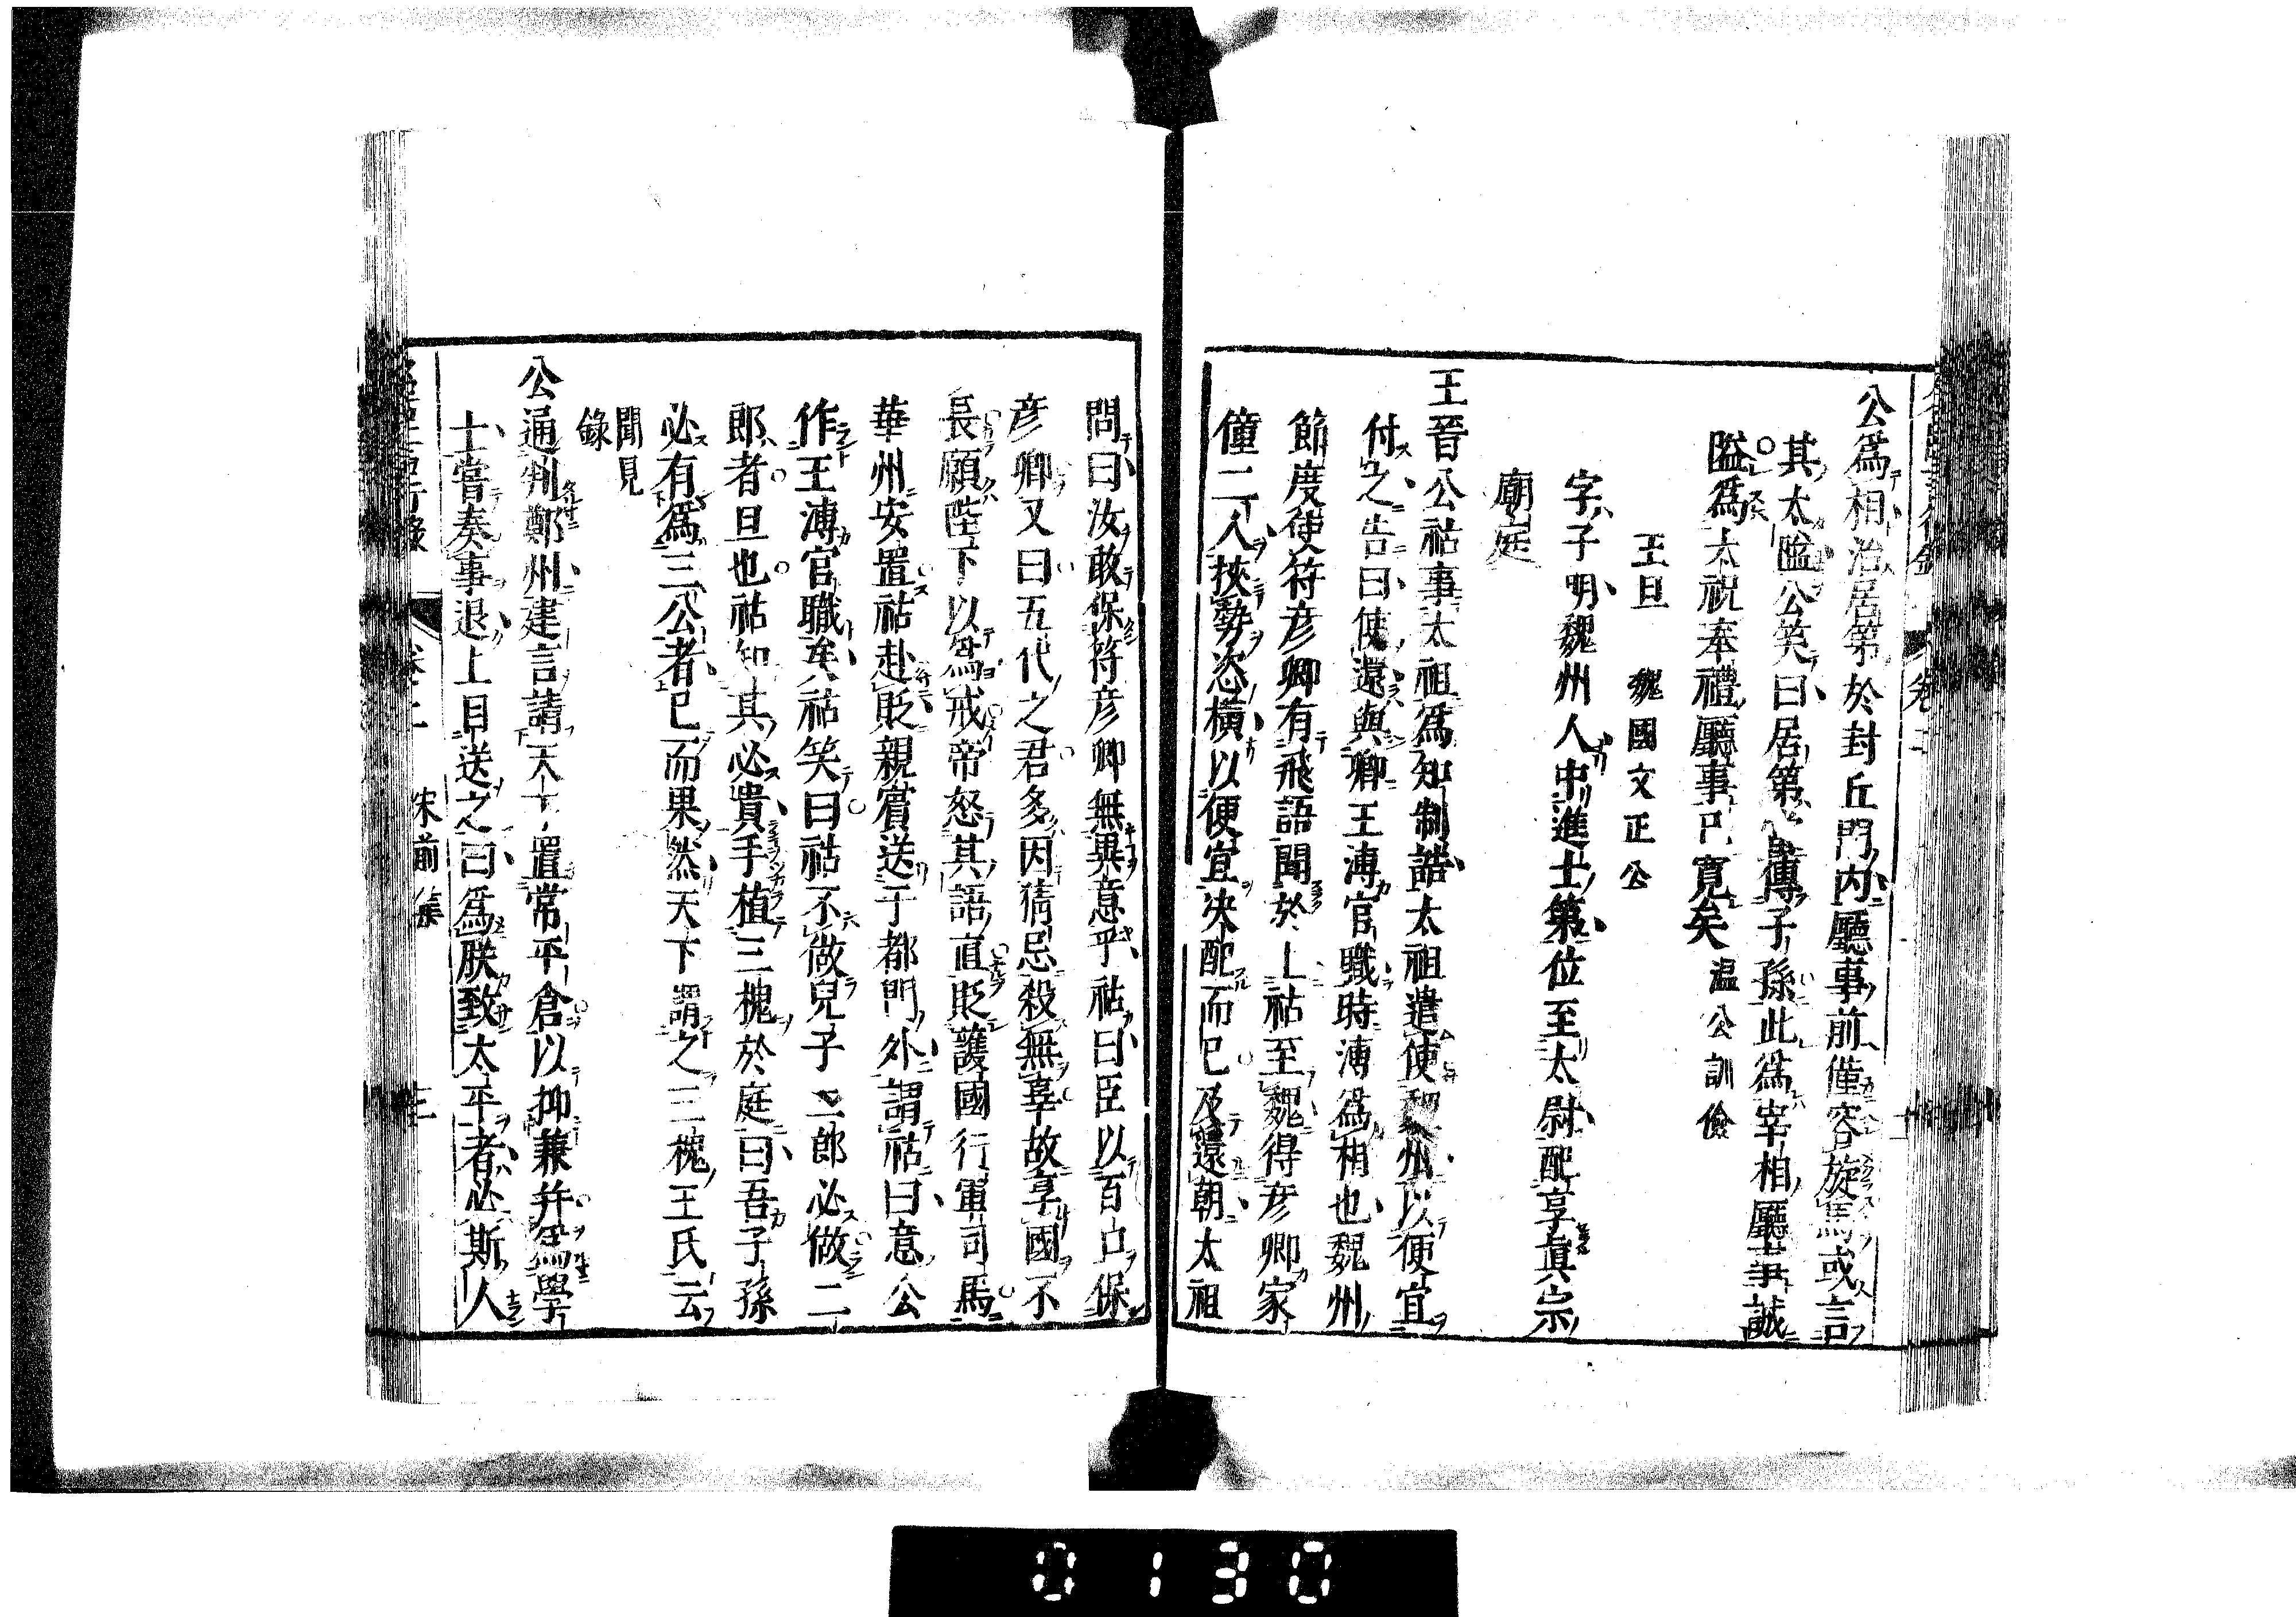 公爲相治居第於封丘門内廳事前僅容旋馬或言
其太隘公笑曰居第當傳子孫此爲宰相廳事誠
隘爲太祝奉禮廳事已寛矣 温公訓儉
王旦 魏國文正公
字子明魏州人中進士第位至太尉配享眞宗
廟庭
王晉公祜事太祖爲知制誥太祖遣使魏州以便宜
付之告曰使還與卿王溥官職時溥爲相也魏州
節度使符彦卿有飛語聞於上祜至魏得彦卿家
僮二人挾勢恣横以便宜决配而已及還朝太祖
問曰汝敢保符彦卿無異意乎祜曰臣以百口保
彦卿又曰五代之君多因猜忌殺無辜故享國不
長願陛下以爲戒帝怒其語直貶護國行軍司馬
華州安置祜赴貶親賓送于都門外謂祜曰意公
作王溥官職矣祜笑曰祜不做兒子二郎必做二
郎者旦也祜知其必貴手植三槐於庭曰吾子孫
必有爲三公者已而果然天下謂之三槐王氏云
聞見
錄
公通判鄭州建言請天下置常平倉以抑兼并爲學
士嘗奏事退上目送之曰爲朕致太平者必斯人
宋前集
0130